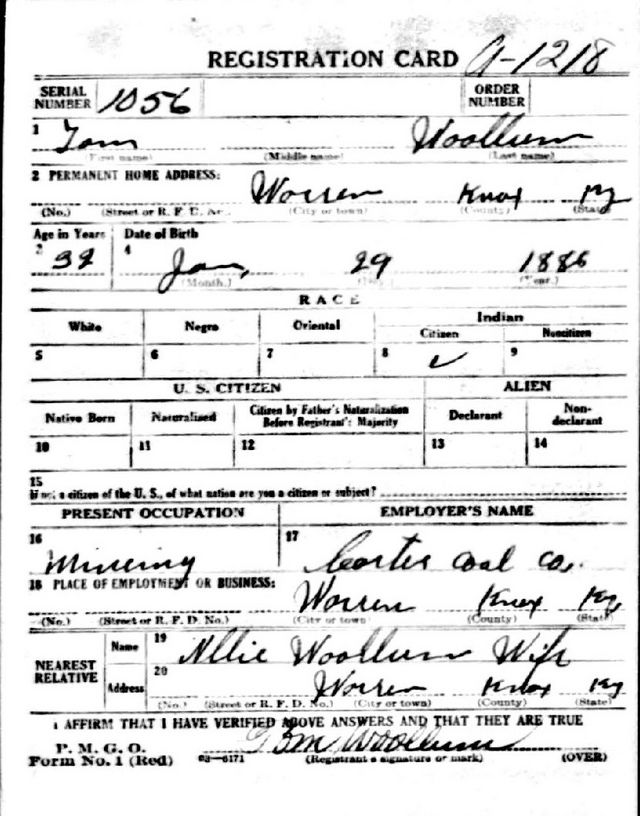 REGISTRATION CARD A-1218
SERIAL NUMBER 1056 ORDER NUMBER
1 Tom Woollum
(First name) (Middle name) (Last name)
2 PERMANENT HOME ADDRESS: Warren Knox Ky
(No.) (Street or R. F. D. No.) (City or town) (County) (State)
Age in Years Date of Birth
3 32 4 Jan, 29 1886
(Month.) (Day.) (Year.)
RACE
White Negro Oriental Indian
Citizen Noncitizen
5 6 7 8 ✓ 9
U. S. CITIZEN ALIEN
Native Born Naturalized Citizen by Father's Naturalization Before Registrant's Majority Declarant Non-declarant
10 11 12 13 14
15
If not a citizen of the U. S., of what nation are you a citizen or subject?
PRESENT OCCUPATION EMPLOYER'S NAME
16 Minering 17 Carter Coal Co.
18 PLACE OF EMPLOYMENT OR BUSINESS:
Warren Knox Ky
(No.) (Street or R. F. D. No.) (City or town) (County) (State)
NEAREST RELATIVE Name 19 Allie Woollum Wife
Address 20 Warren Knox Ky
(No.) (Street or R. F. D. No.) (City or town) (County) (State)
I AFFIRM THAT I HAVE VERIFIED ABOVE ANSWERS AND THAT THEY ARE TRUE
P. M. G. O.
Form No. 1 (Red) 03—6171 Tom Woollum
(Registrant's signature or mark) (OVER)